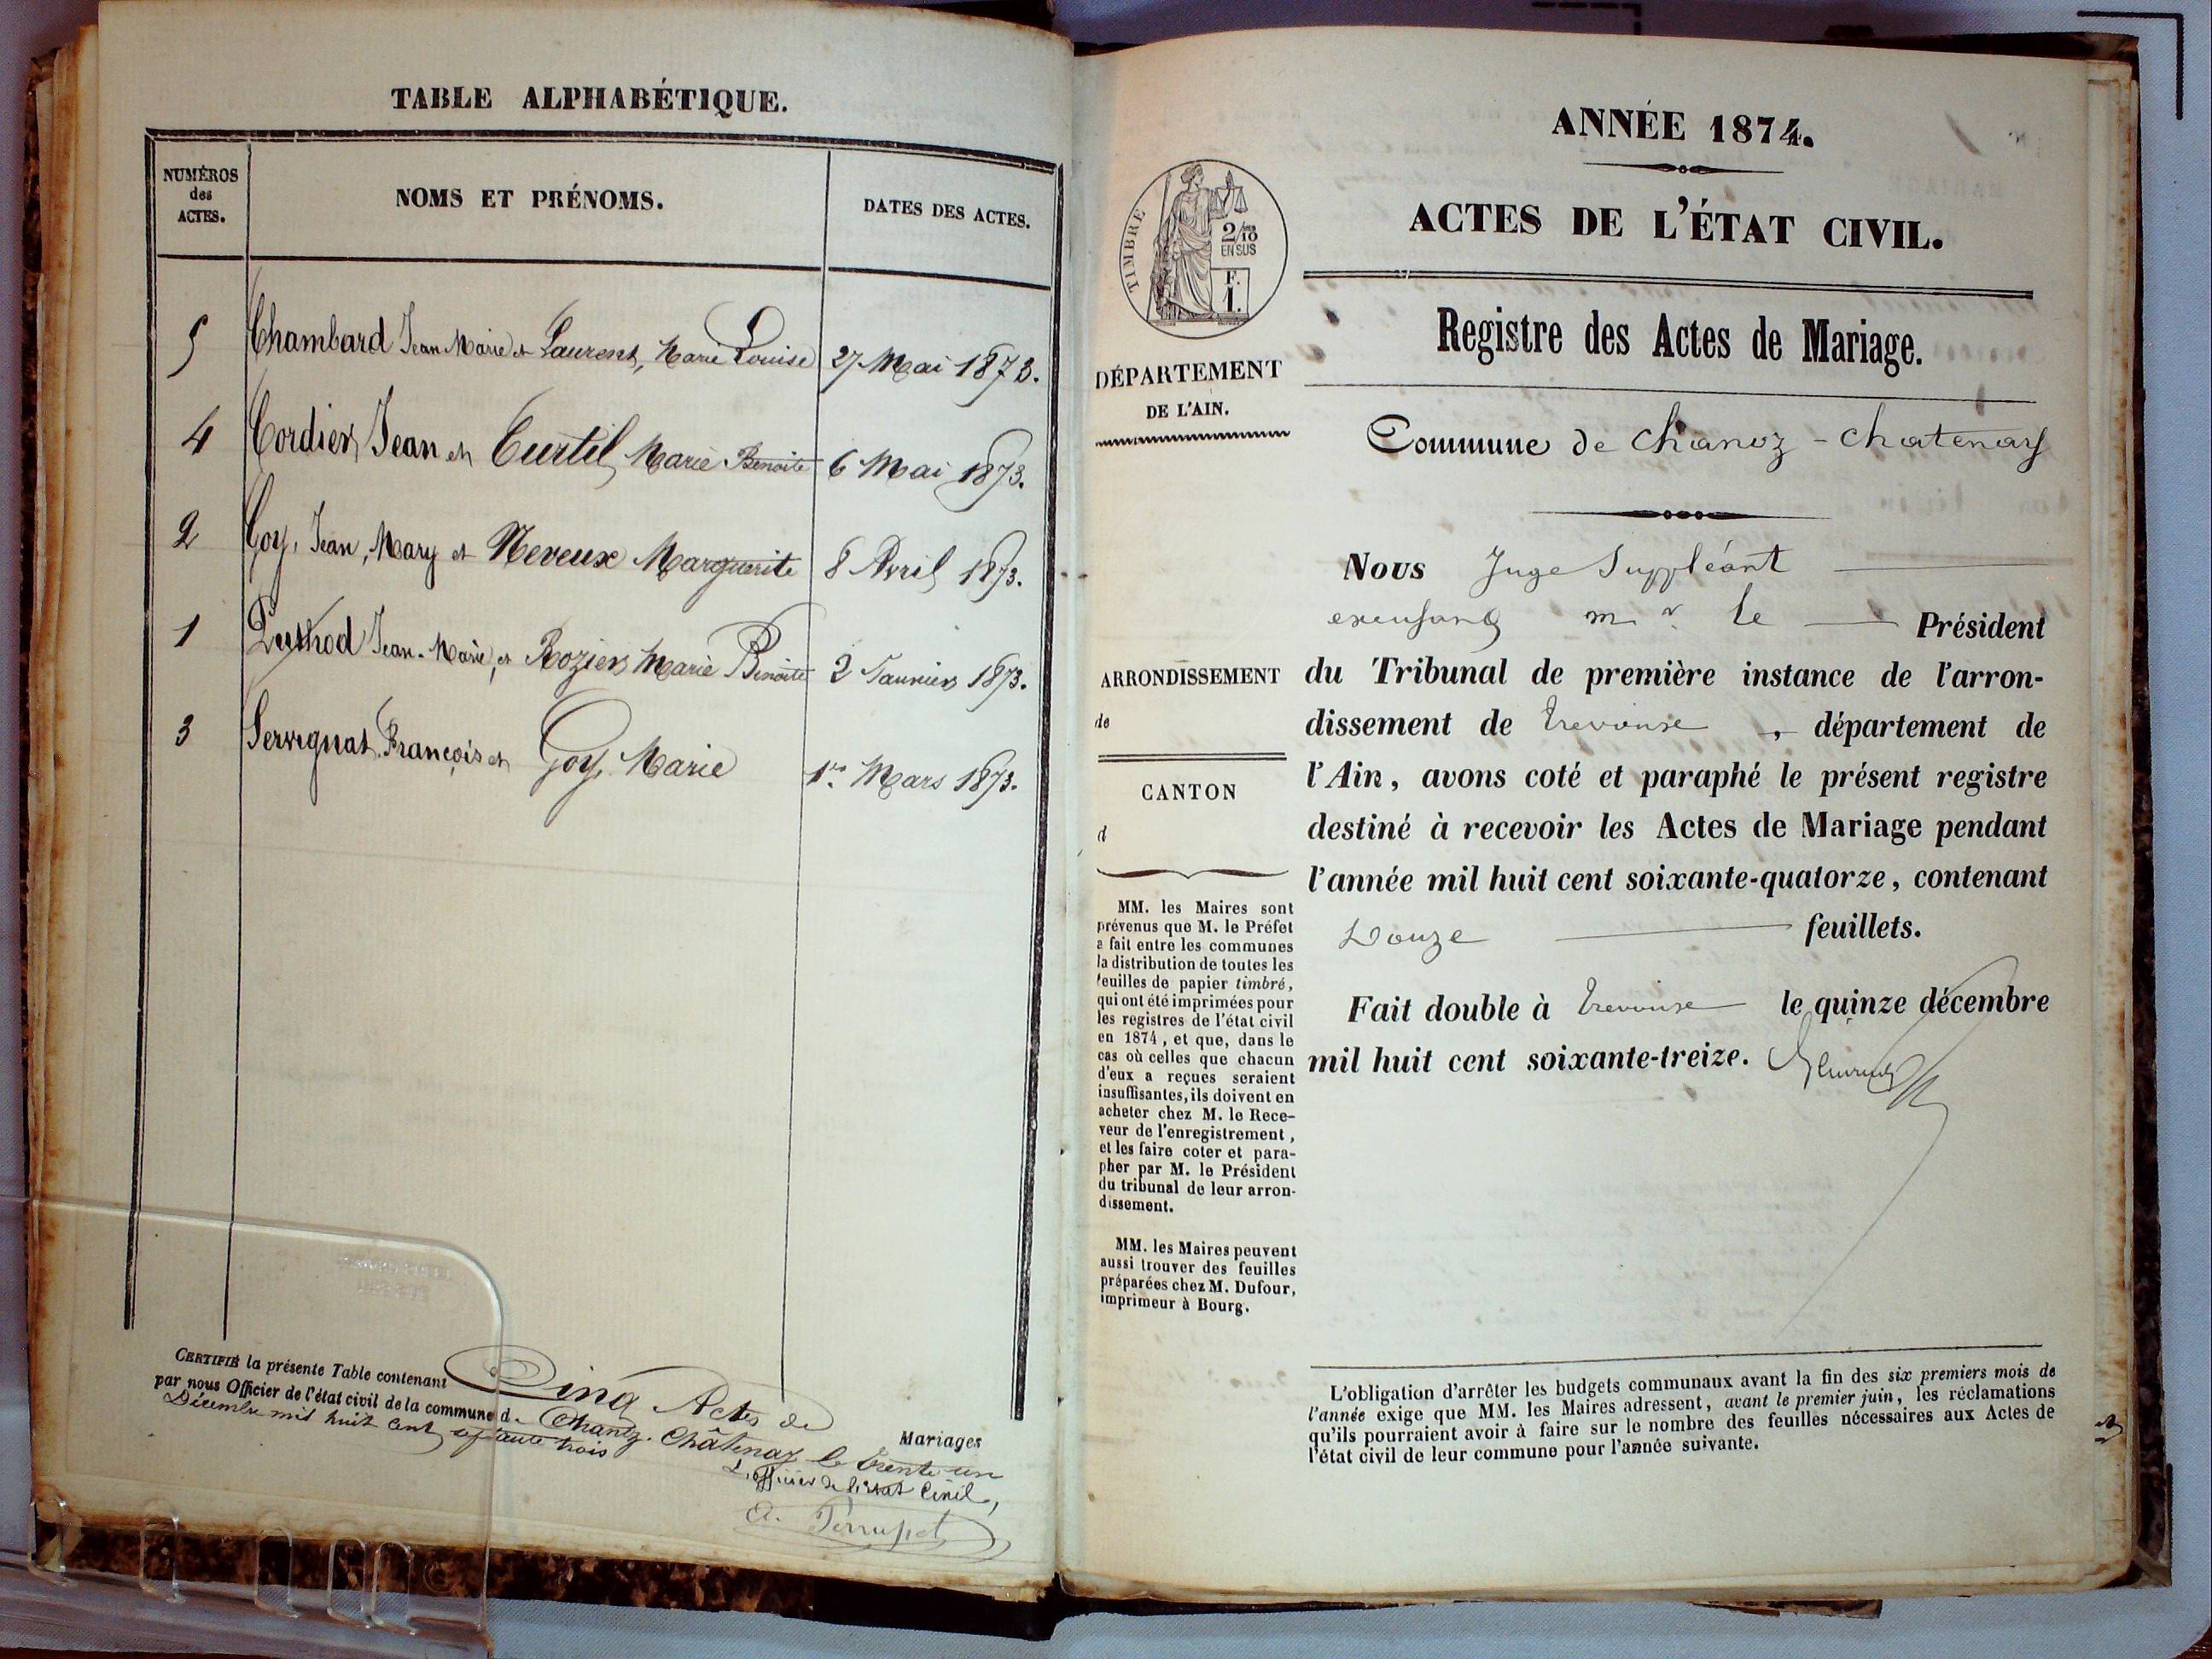 TABLE ALPHABÉTIQUE.
NUMÉROS
des
ACTES.
NOMS ET PRÉNOMS.
DATES DES ACTES.
5 Chambard Jean Marie et Laurent, Marie Louise 27 Mai 1873.
4 Cordier Jean et Curtil Marie Benoite 6 Mai 1873.
2 Goy, Jean, Mary et Neveux Marguerite 8 Avril 1873.
1 Jean-Marie, et Rozier Marie Benoite 2 Janvier 1873.
3 Servignat François et Goy, Marie 1er Mars 1873.
CERTIFIÉ la présente Table contenant Cinq Actes de Mariages
par nous Officier de l'état civil de la commune de Chanoz-Châtenay le trente un
Décembre mil huit cent septante trois
L'officier de l'état Civil,
ANNÉE 1874.
ACTES DE L'ÉTAT CIVIL.
TIMBRE
2/10
EN SUS
F.
1.
Registre des Actes de Mariage.
DÉPARTEMENT
DE L'AIN.
Commune de Chanoz-Chatenay
Nous Juge Suppléant
mr le Président
ARRONDISSEMENT
de
CANTON
d
du Tribunal de première instance de l'arron-
dissement de Trévoux, département de
l'Ain, avons coté et paraphé le présent registre
destiné à recevoir les Actes de Mariage pendant
l'année mil huit cent soixante-quatorze, contenant
Douze feuillets.
Fait double à Trévoux le quinze décembre
mil huit cent soixante-treize.
MM. les Maires sont
prévenus que M. le Préfet
a fait entre les communes
la distribution de toutes les
feuilles de papier timbré,
qui ont été imprimées pour
les registres de l'état civil
en 1874, et que, dans le
cas où celles que chacun
d'eux a reçues seraient
insuffisantes, ils doivent en
acheter chez M. le Rece-
veur de l'enregistrement,
et les faire coter et para-
pher par M. le Président
du tribunal de leur arron-
dissement.
MM. les Maires peuvent
aussi trouver des feuilles
préparées chez M. Dufour,
imprimeur à Bourg.
L'obligation d'arrêter les budgets communaux avant la fin des six premiers mois de
l'année exige que MM. les Maires adressent, avant le premier juin, les réclamations
qu'ils pourraient avoir à faire sur le nombre des feuilles nécessaires aux Actes de
l'état civil de leur commune pour l'année suivante.